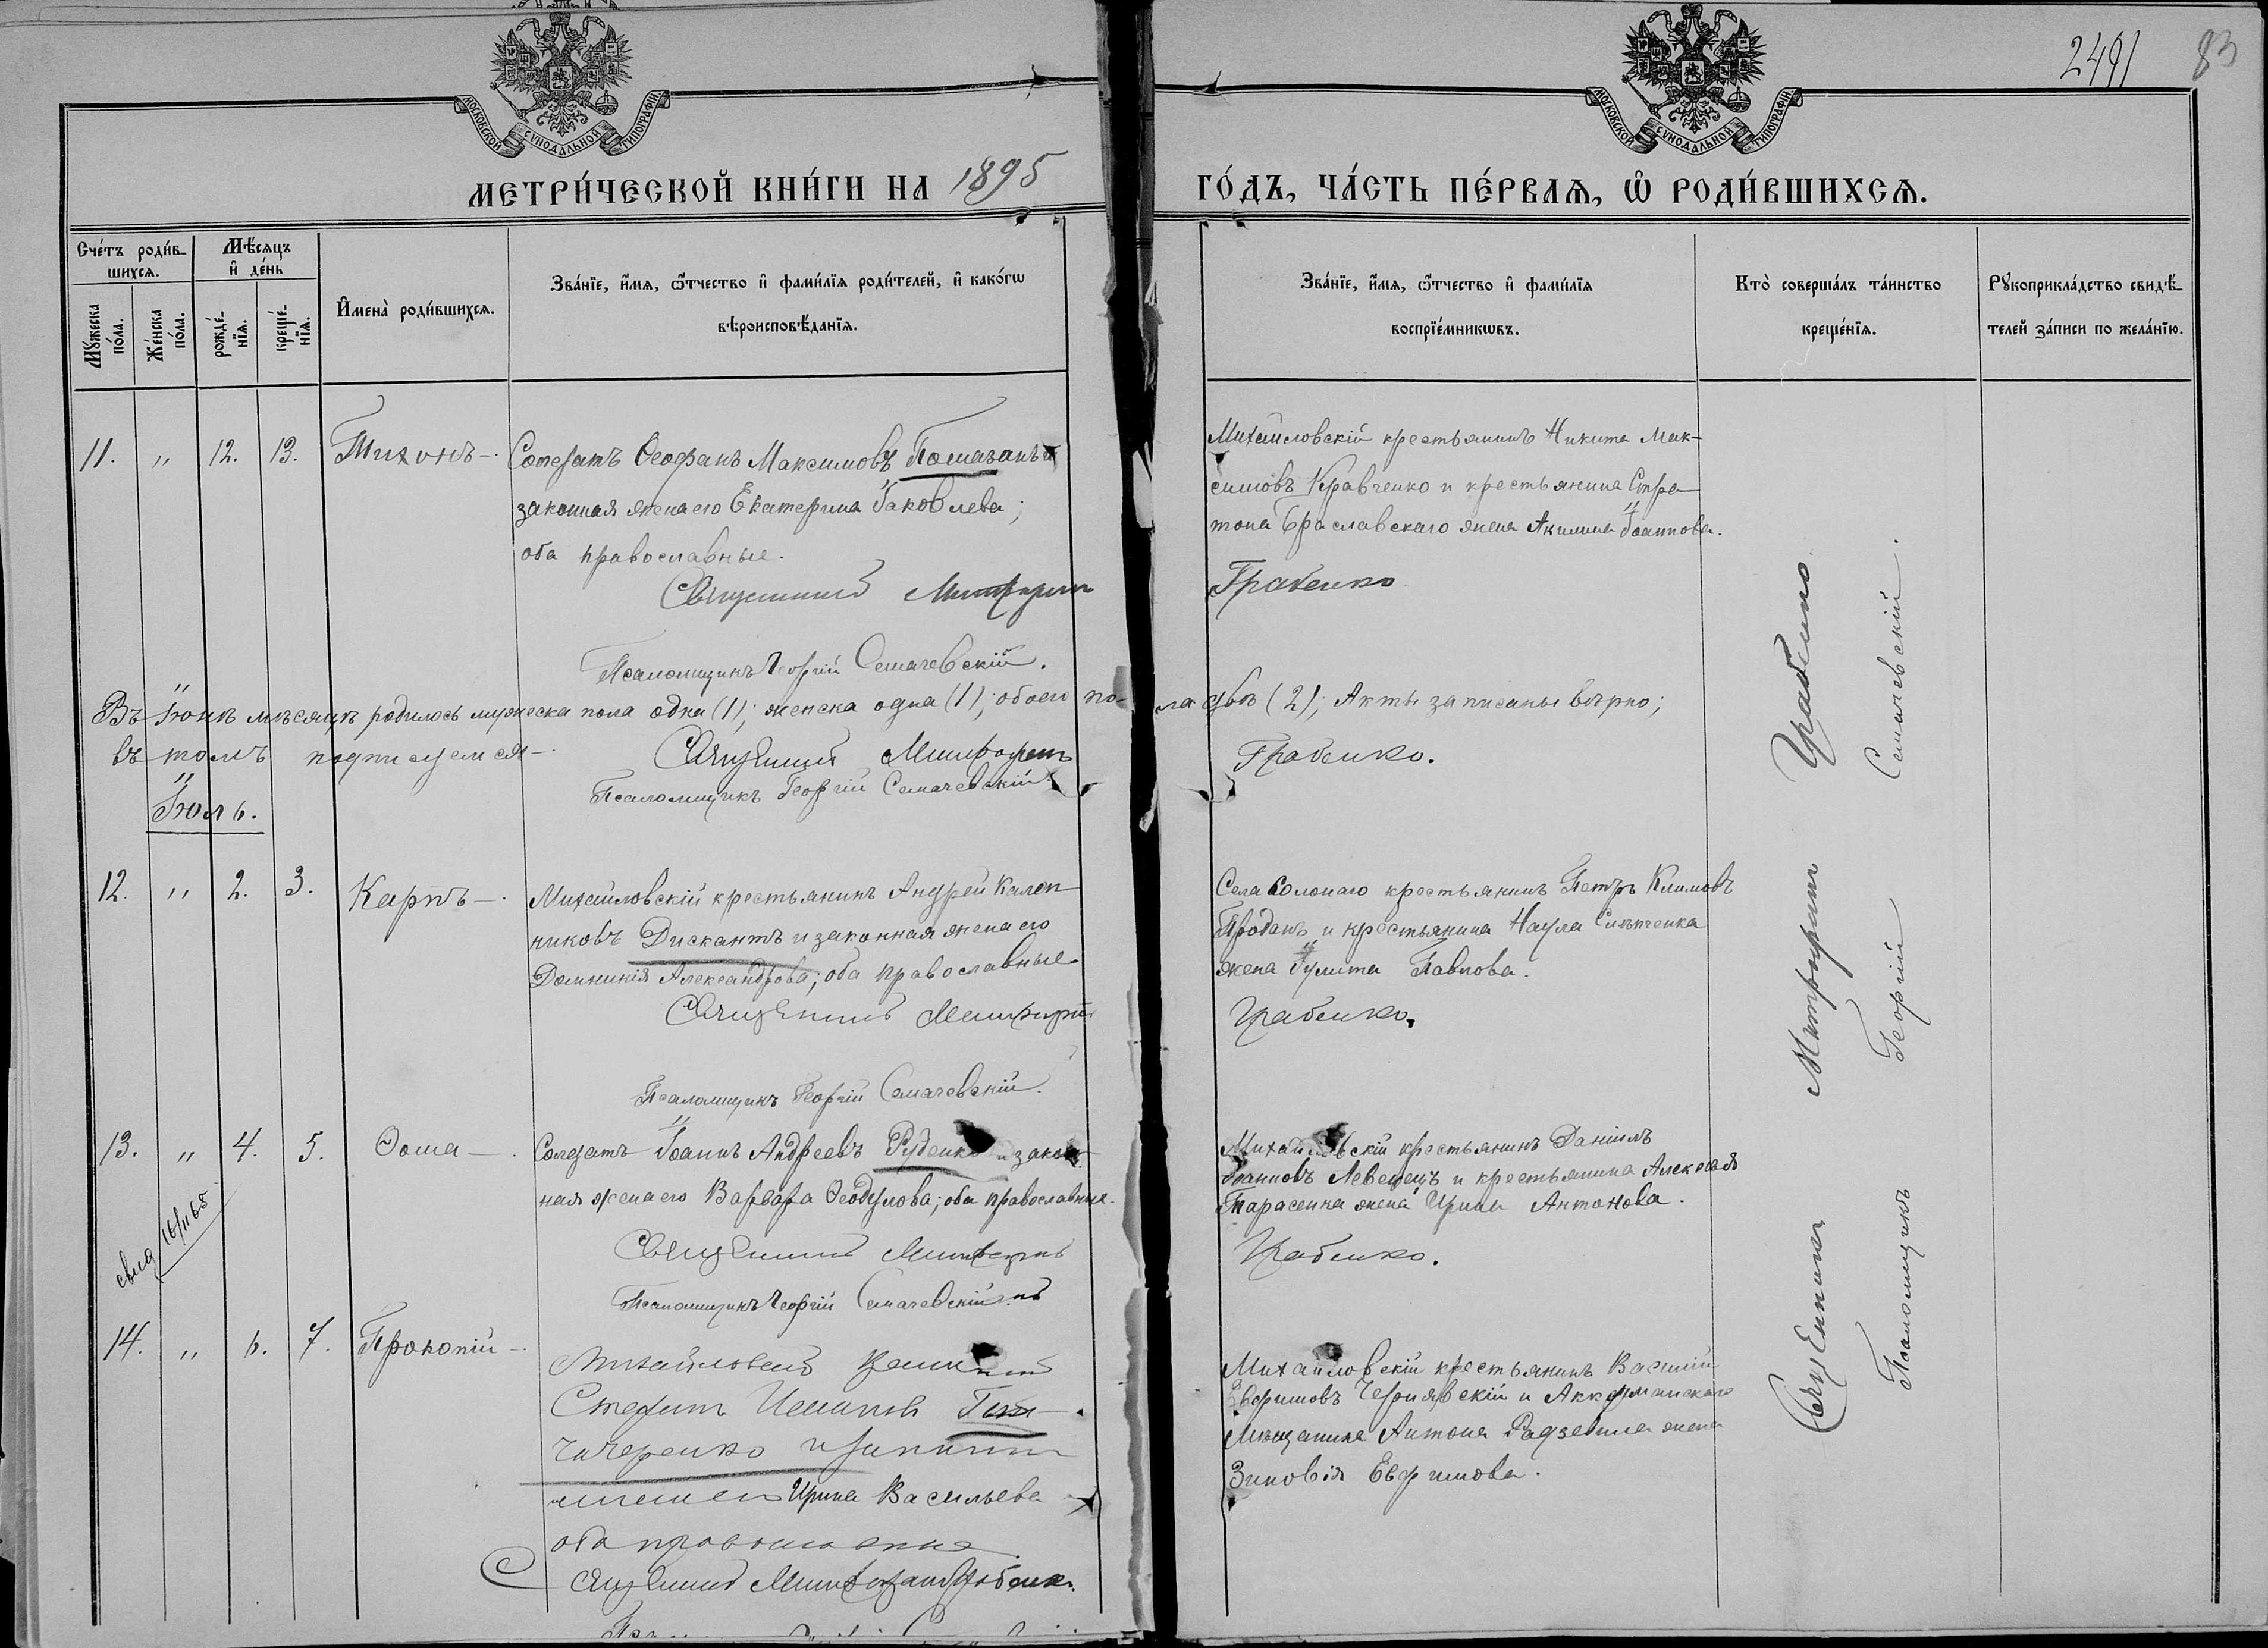 2491 83
МОСКОВСКОЙ СѴНОДАЛЬНОЙ ТИПОГРАФІИ
МОСКОВСКОЙ СѴНОДАЛЬНОЙ ТИПОГРАФІИ
МЕТРИ́ЧЕСКОЙ КНИ́ГИ НА 1895 ГО́ДЪ, ЧА́СТЬ ПЕ́РВАѦ, Ѿ РОДИ́ВШИХСѦ.
Сче́тъ роди́в-
шихсѧ.
Мꙋ́жеска по́ла.
Же́нска по́ла.
Мѣ́сѧцъ
и҆ де́нь
рожде́-
нїѧ.
креще́-
нїѧ.
И҆мена̀ роди́вшихсѧ.
Зва́нїе, и҆́мѧ, ѻ҆́тчество и҆ фами́лїѧ роди́телей, и҆ како́гѡ
вѣроисповѣ́данїѧ.
Зва́нїе, и҆́мѧ, ѻ҆́тчество и҆ фами́лїѧ
воспрїе́мникѡвъ.
Кто̀ соверша́лъ та́инство
креще́нїѧ.
Рꙋкоприкла́дство свидѣ́-
телей за́писи по жела́нїю.
11. " 12. 13. Тихонъ-.
Солдатъ Ѳеофанъ Максимовъ
законная жена его Екатерина Іаковлева;
оба православные.
Священникъ Митрофанъ
Псаломщикъ Георгій Семачевскій.
Михайловскій крестьянинъ Никита Мак-
симовъ Кравченко и крестьянина Стра-
тона Браславскаго жена Акилина Іоаннова.
Грабенко
Въ Іюнѣ мѣсяцѣ родилось мужеска пола одна (1); женска одна (1); обоего по-ла двѣ (2); Акты записаны вѣрно;
въ томъ подписуемся-
Священникъ Митрофанъ Грабенко.
Псаломщикъ Георгій Семачевскій.
Іюль.
12. " 2. 3. Карпъ-.
Михайловскій крестьянинъ Андрей Кален-
никовъ Дискантъ и законная жена его
Домникія Александрова; оба православные
Священникъ Митрофанъ
Псаломщикъ Георгій Семачевскій.
Села Солонаго крестьянинъ Петръ Климовъ
Проданъ и крестьянина Наума
жена Іулита Павлова.
Грабенко.
13. " 4. 5. Ѳома-.
Солдатъ Іоаннъ Андреевъ Руденко и закон-
ная жена его Варвара Ѳеодулова; оба православные.
Священникъ Митрофанъ
Псаломщикъ Георгій Семачевскій
Михайловскій крестьянинъ Даніилъ
Іоанновъ Левенецъ и крестьянина Алексѣя
Тарасенка жена Ирина Антонова.
Грабенко.
свид 16/II 65
14. " 6. 7. Прокопій-.
Михайловскій
Стефанъ
Ирина Васильева
оба православные
Священникъ Митрофанъ Грабенко.
Михайловскій крестьянинъ Василій
Евфимовъ Чернявскій и Аккерманскаго
мѣщанина Антона жена
Зиновія Евфимова.
Священникъ Митрофанъ Грабенко
Псаломщикъ Георгій Семачевскій.